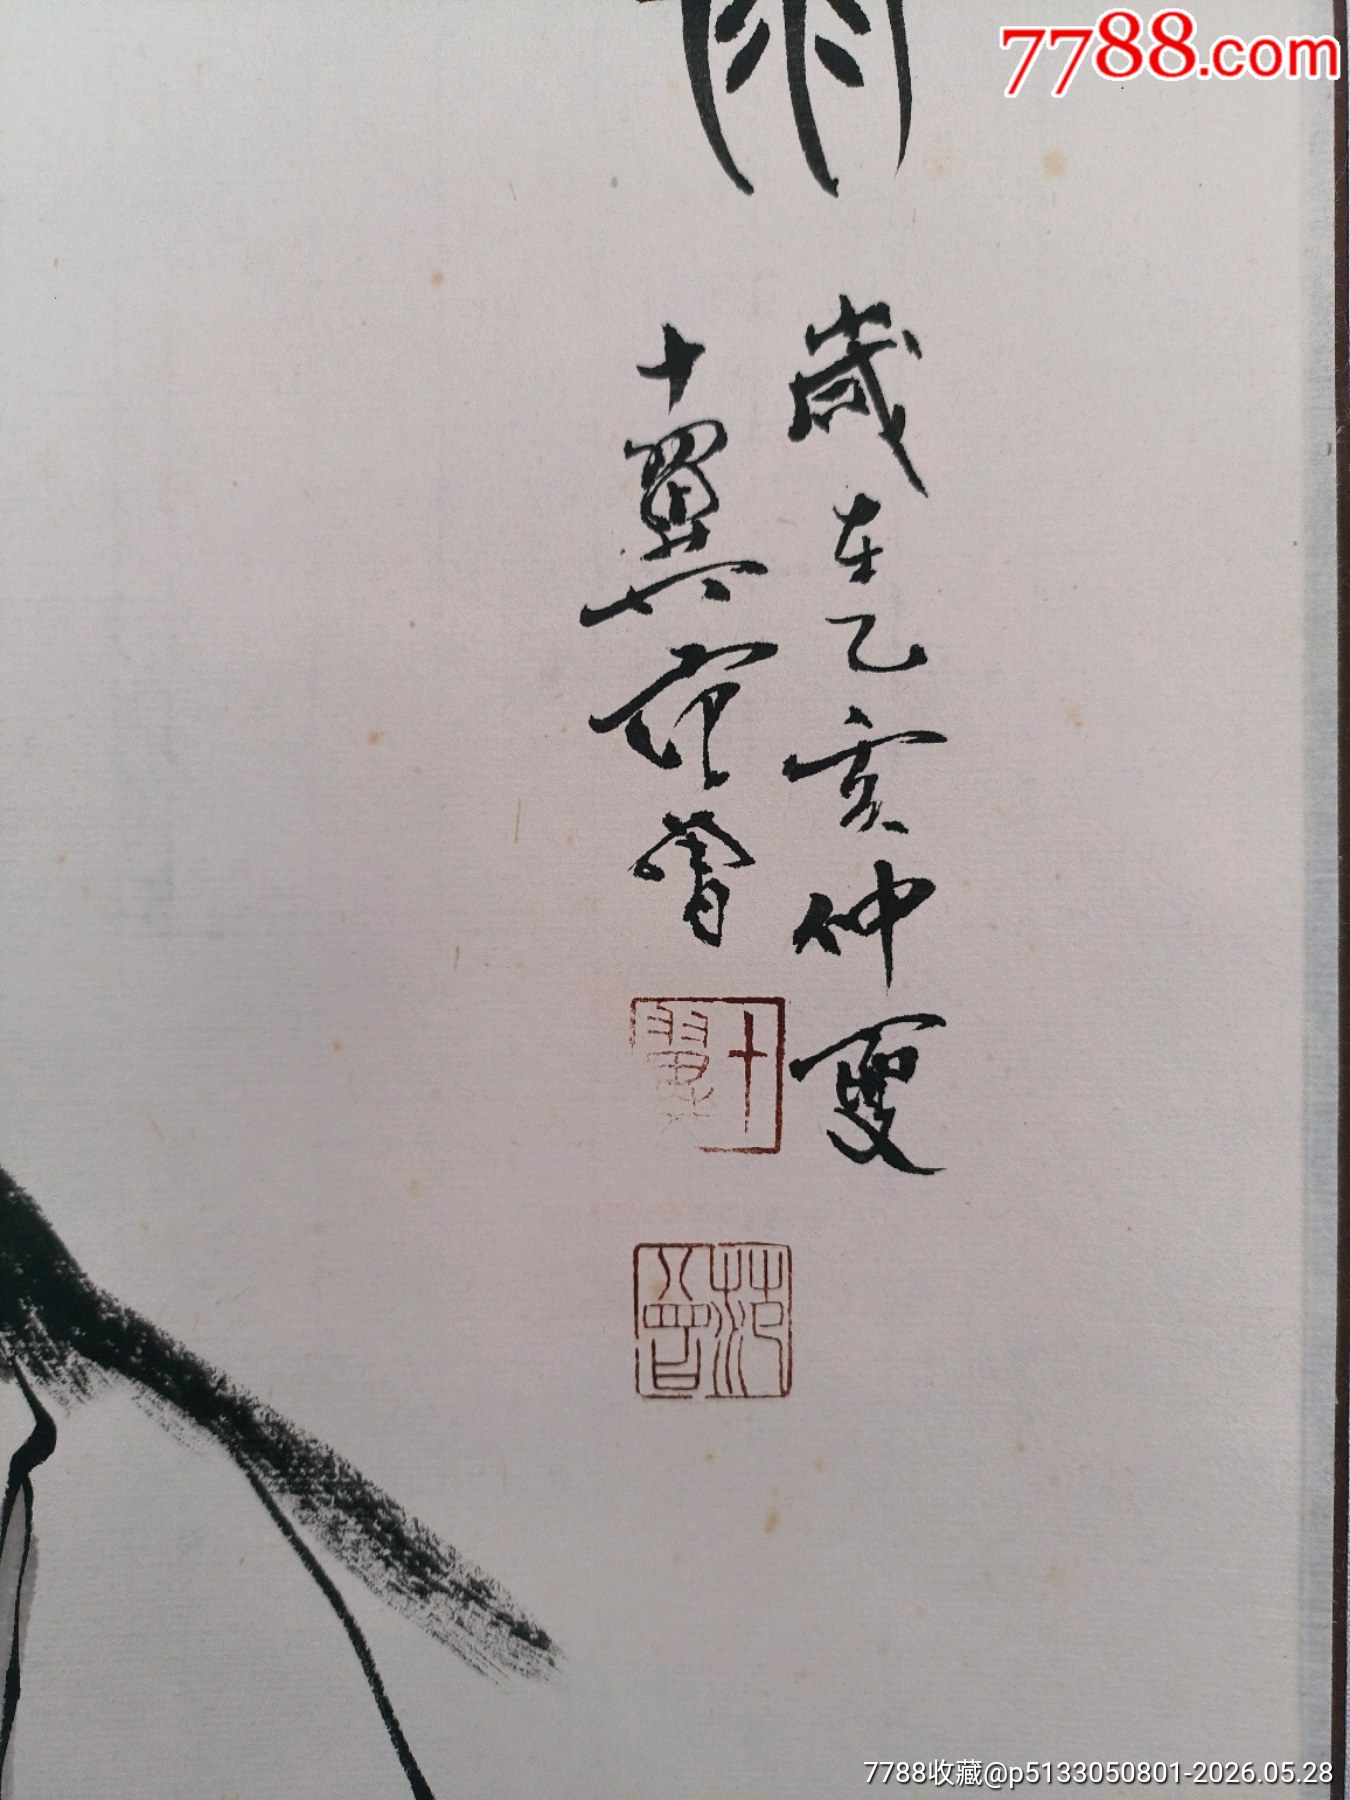 7788.com
雨
歲在乙亥仲夏
十翼范曾
十翼
范曾
7788收藏@p5133050801-2026.05.28